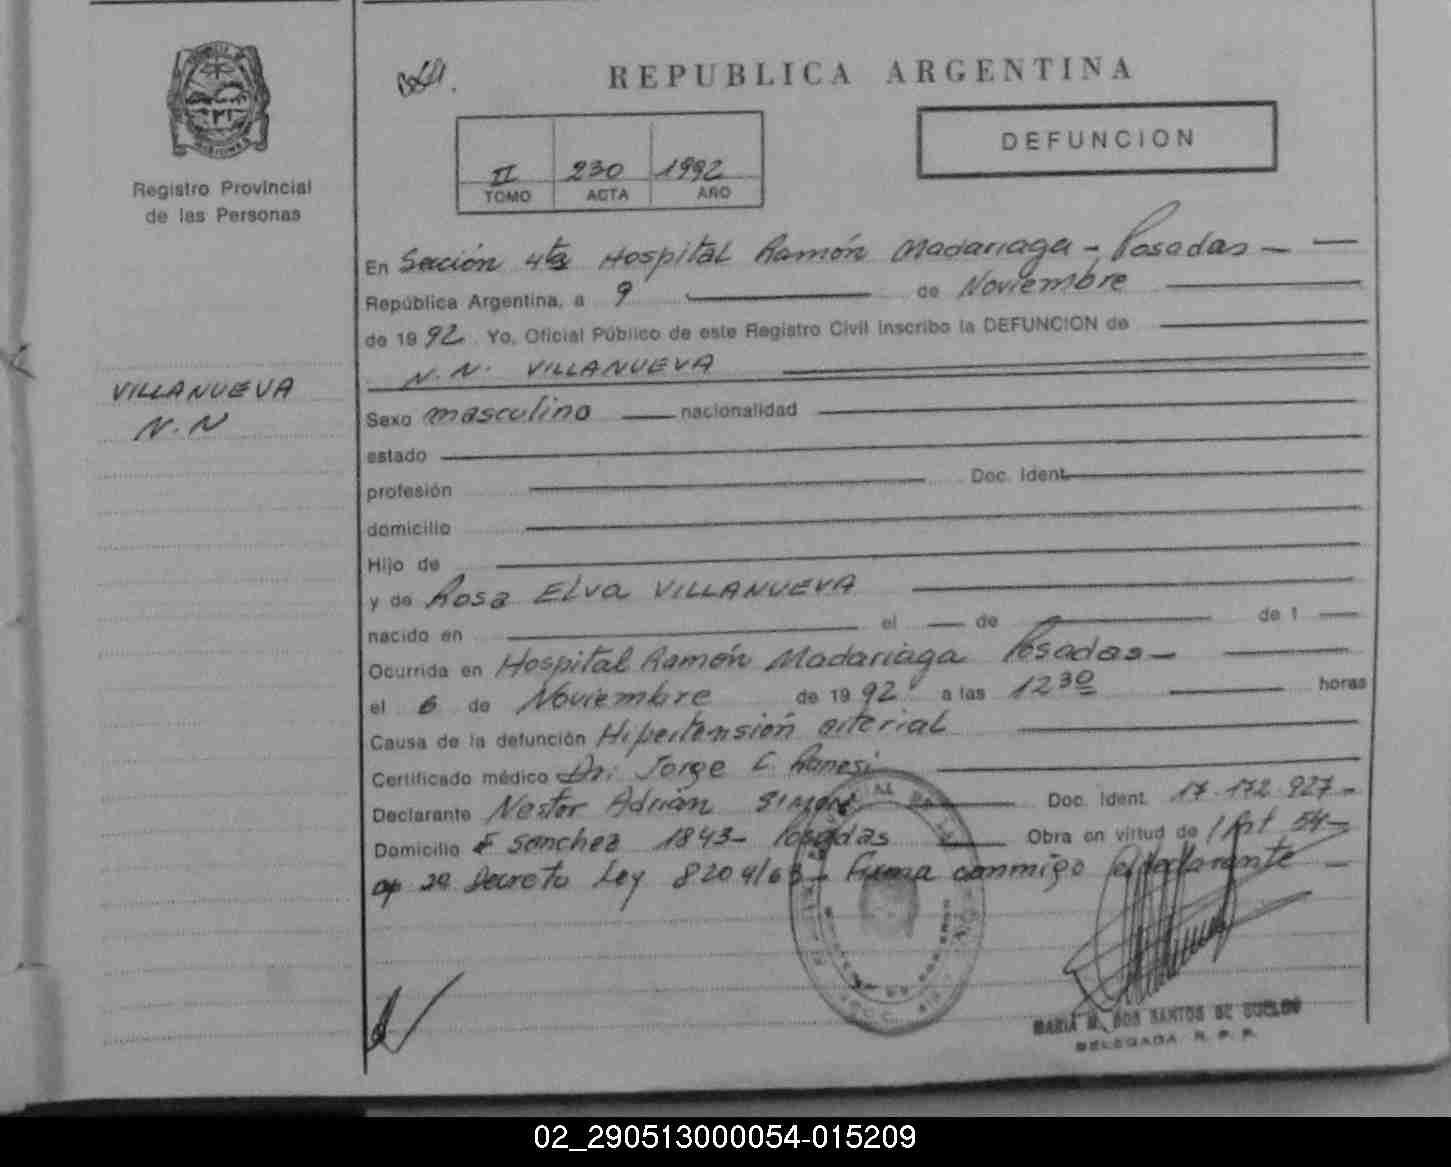 REPUBLICA ARGENTINA
DEFUNCION
II 230 1992
TOMO ACTA AÑO
Registro Provincial
de las Personas
VILLANUEVA
N.N
En Sección 4ta Hospital Ramón Madariaga - Posadas -
República Argentina, a 9 de Noviembre
de 1992. Yo, Oficial Público de este Registro Civil inscribo la DEFUNCION de
N. N. VILLANUEVA
Sexo masculino nacionalidad
estado
profesión Doc. Ident.
domicilio
Hijo de
y de Rosa Elva VILLANUEVA
nacido en el de de 1
Ocurrida en Hospital Ramón Madariaga Posadas -
el 6 de Noviembre de 1992 a las 12 30 horas
Causa de la defunción Hipertensión arterial
Certificado médico Dr. Jorge C.
Declarante Nestor Adrián Doc. Ident. 17.172.927-
Domicilio F Sanchez 1843- Posadas Obra en virtud de
Decreto Ley 8204/63- Firma conmigo el declarante -
MARIA M. DOS SANTOS DE
DELEGADA R. P. P.
02_290513000054-015209